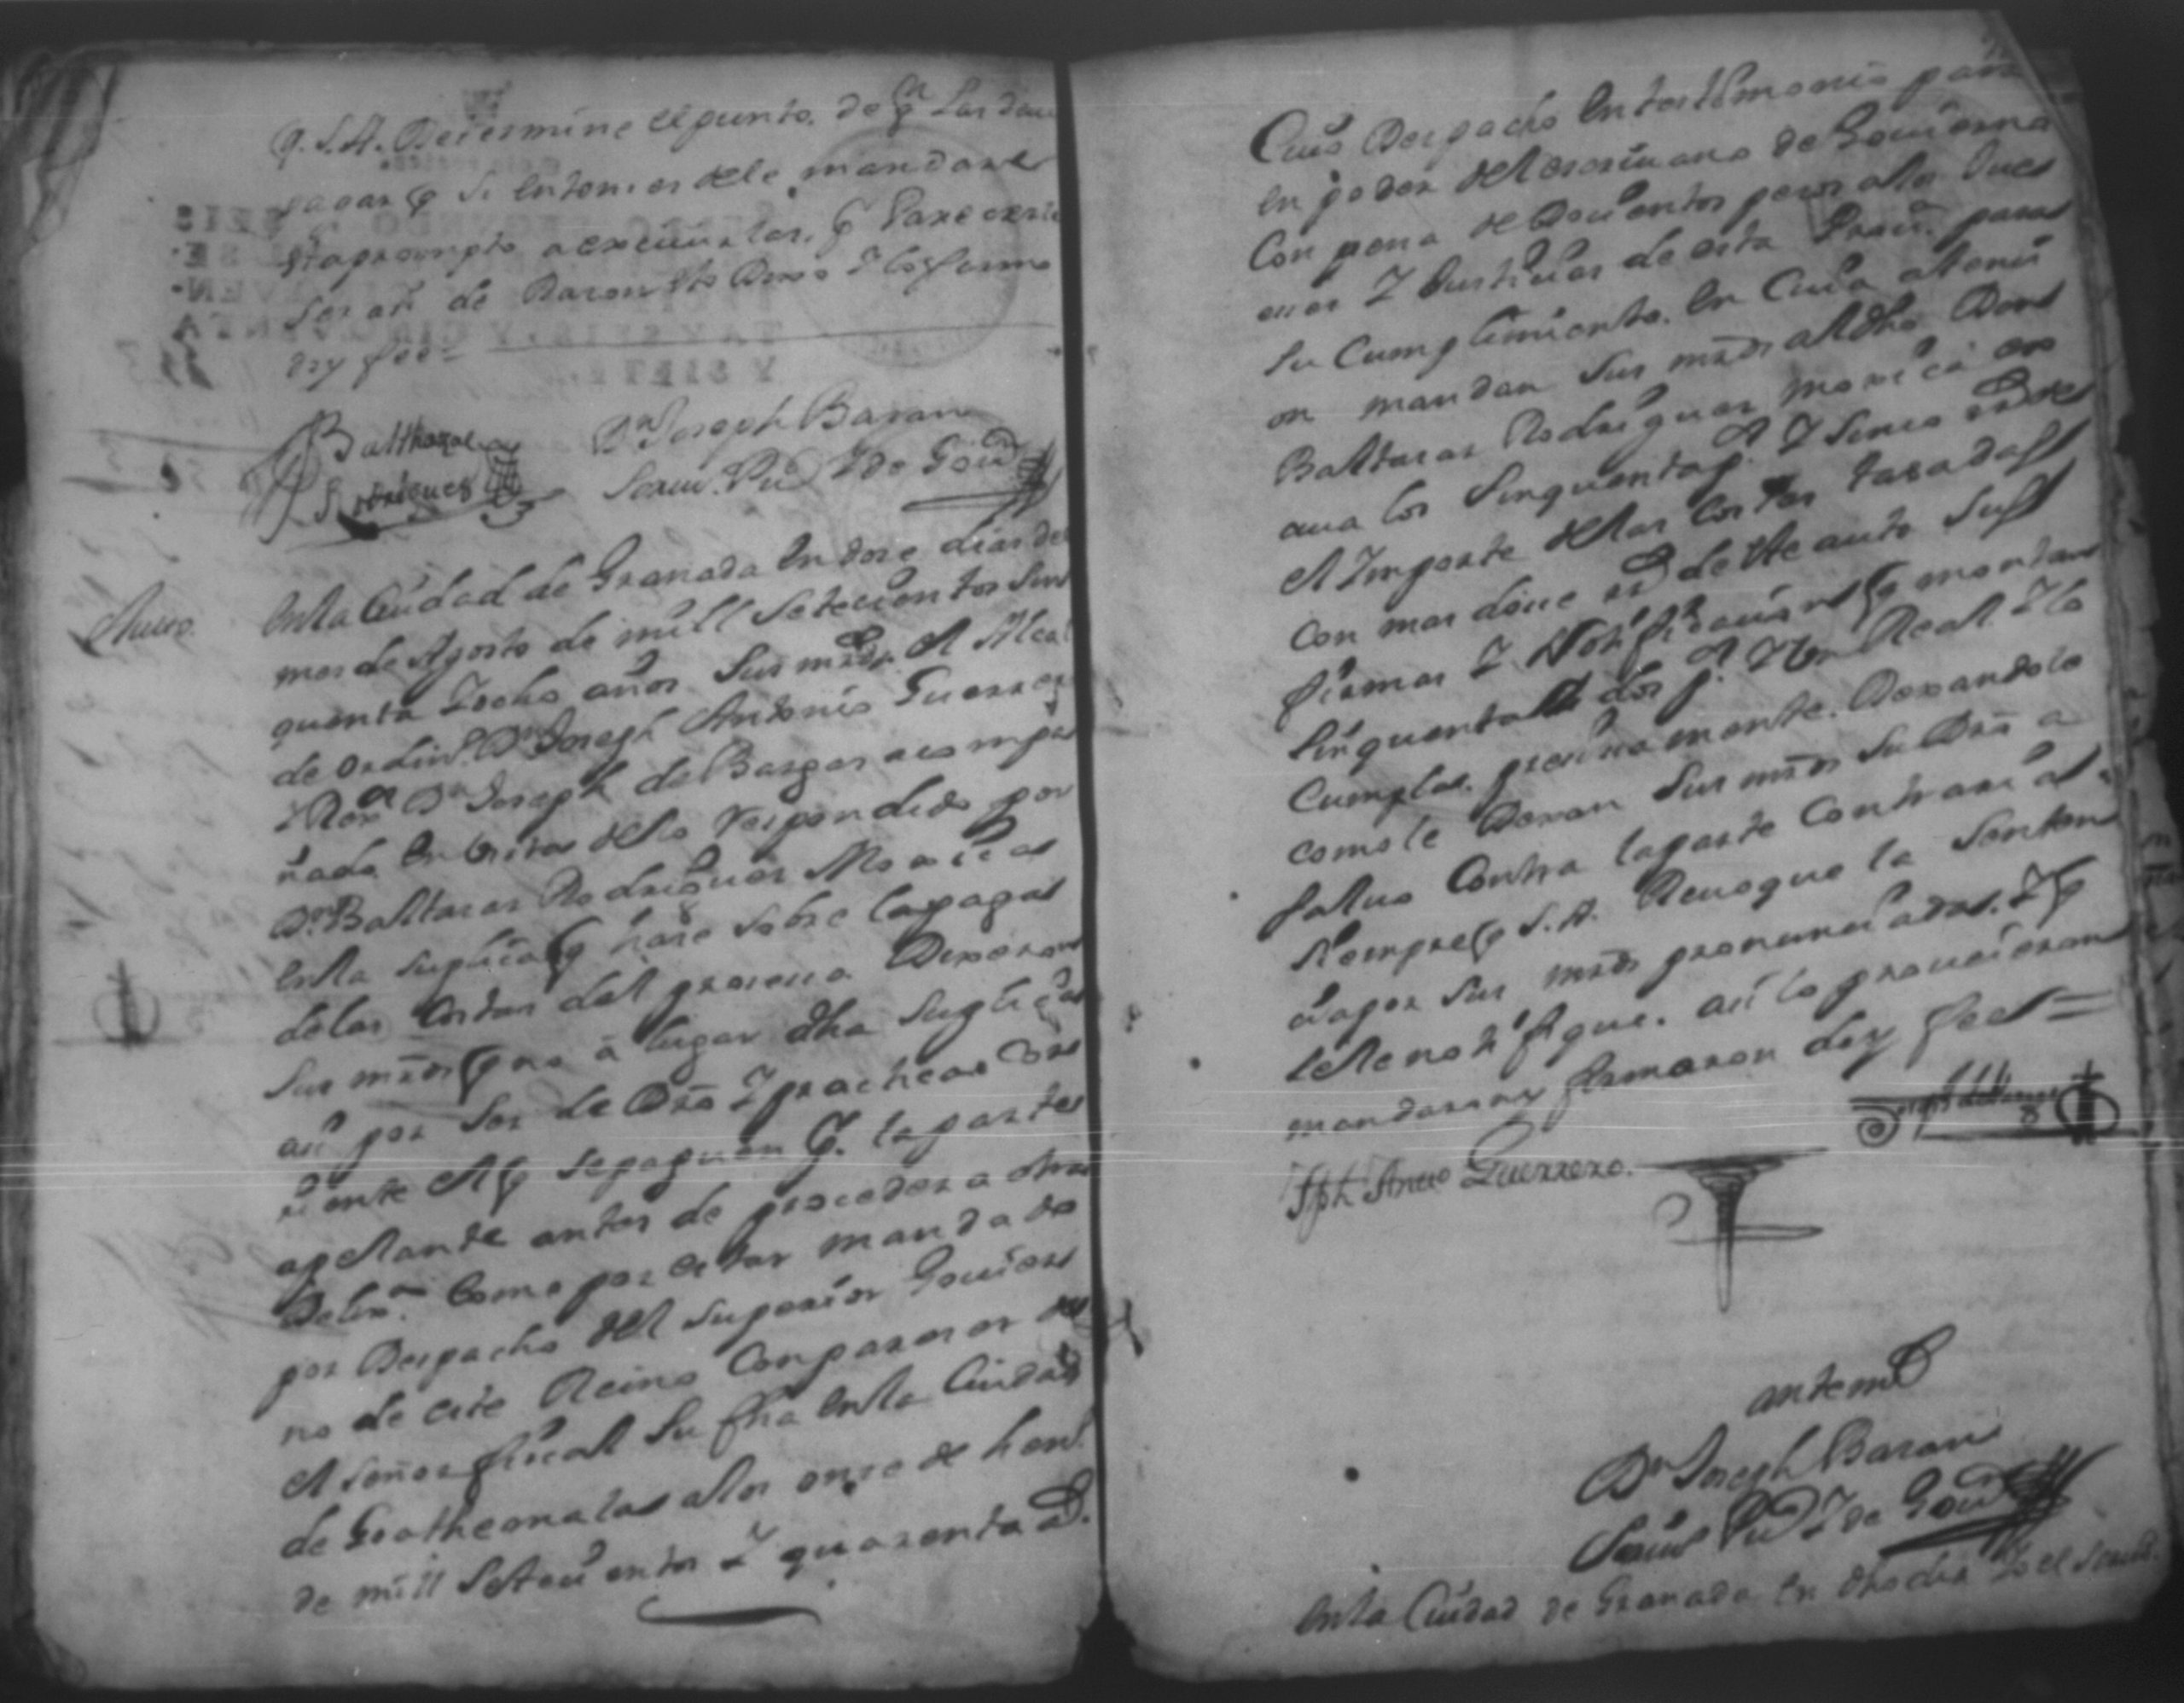 q. S.A. Determine el punto. de qn Las deve
pagar q si entonces sele mandare
sta prompto a executarlo. q
de Razon sto Dixo I lo firmo
doy fee=
Balthazar
Rodriguez
Dn Joseph Bazan
Scriu. Pu I de Gou
Auto.
Enla Ciudad de Granada en dose dias del
mes de Agosto de mill setecientos sin
quenta I ocho años Sus mrds. el Alcal
de ordino. Dn Joseph Antonio Guerrer
I Dn Joseph de Bargas acompa
ñado en bista delo respondido por
Dn Baltasar Rodriguez Moxica
enla suplica q hase sobre la paga
delas Costas del proceso Dixeron
Sus mrds q no a lugar dha suplica
asi por ser de Dro I practica Con
al q se paguen pr. la parte
apelante antes de proceder a otra
Como por estar mandado
por Despacho del Superior Gouier
no de este Reino
el señor fiscal su fha enla Ciudad
de Goathemala a los onse de
de mill setecientos I quarenta
Cuio Despacho en testimonio para
en poder del escriuano de Gouierna
Con pena de Docientos pesos a los Jue
ces I Justicias de esta Prouia. para
su Cumplimiento. en Cuia atenci
on mandan Sus mrds al dho Don
Baltasar Rodriguez Moxica
los sinquenta ps. I sinco
el Importe delas Costas tasadas
Con mas dose de este auto sus
firmas I Notificacion q montan
sinquenta Real I lo
Cumpla. precisamente. Dexandole
como le Dexan sus mrds su Dro a
saluo Contra la parte Contraria
siempre q S.A. Reuoque la senten
cia por sus mrds pronunciada. I q
se le notifique. asi lo proueieron
mandaron y firmaron doy fee=
Jph Anto Guerrero.
ante mi
Dn Joseph Bazan
Scriu Pu I de Gou
Enla Ciudad de Granada en dho dia Io el Scriu.